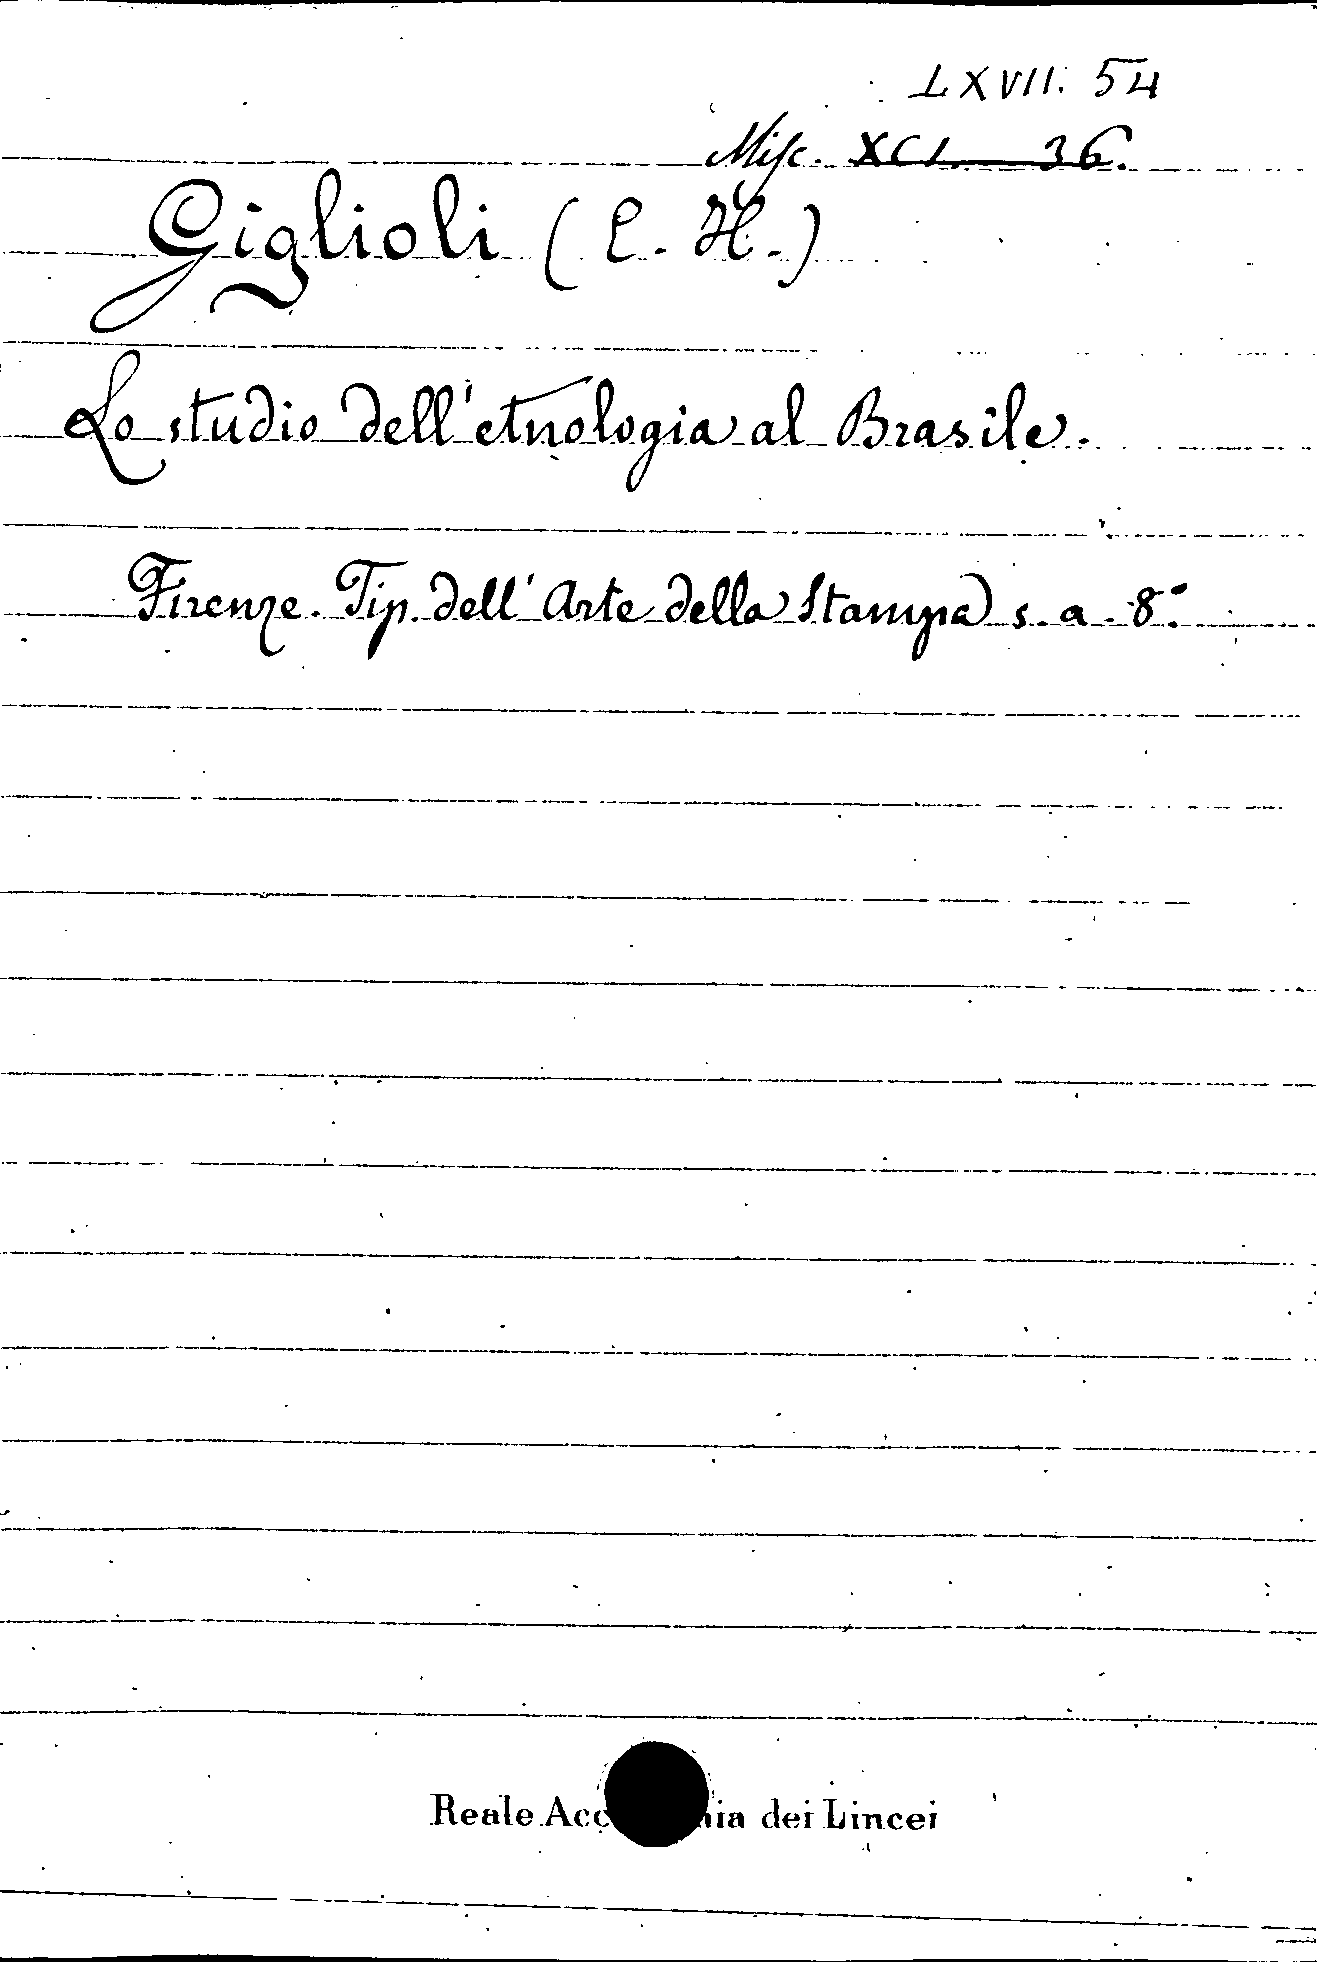 LXVII. 54
Misc. XCI 36.
Giglioli (E. H.)
Lo studio dell'etnologia al Brasile.
Firenze. Tip. dell'Arte della Stampa s. a. 8.°
Reale dei Lincei